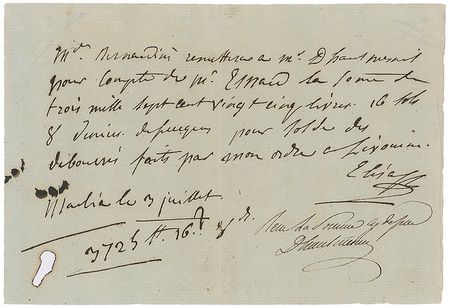 Mr. Bernardini remettera a Mr. D'hautmesnil
pour compte de Mr. Eynard la somme de
trois mille sept cent vingt cinq livres 16 sols
8 deniers de lucques pour solde des
deboursés faits par mon ordre a Livourne.
Elisa
Marlia le 3 juillet
3725 ₶. 16. 8 d.
Reçu la somme cy dessus
D'hautmesnil